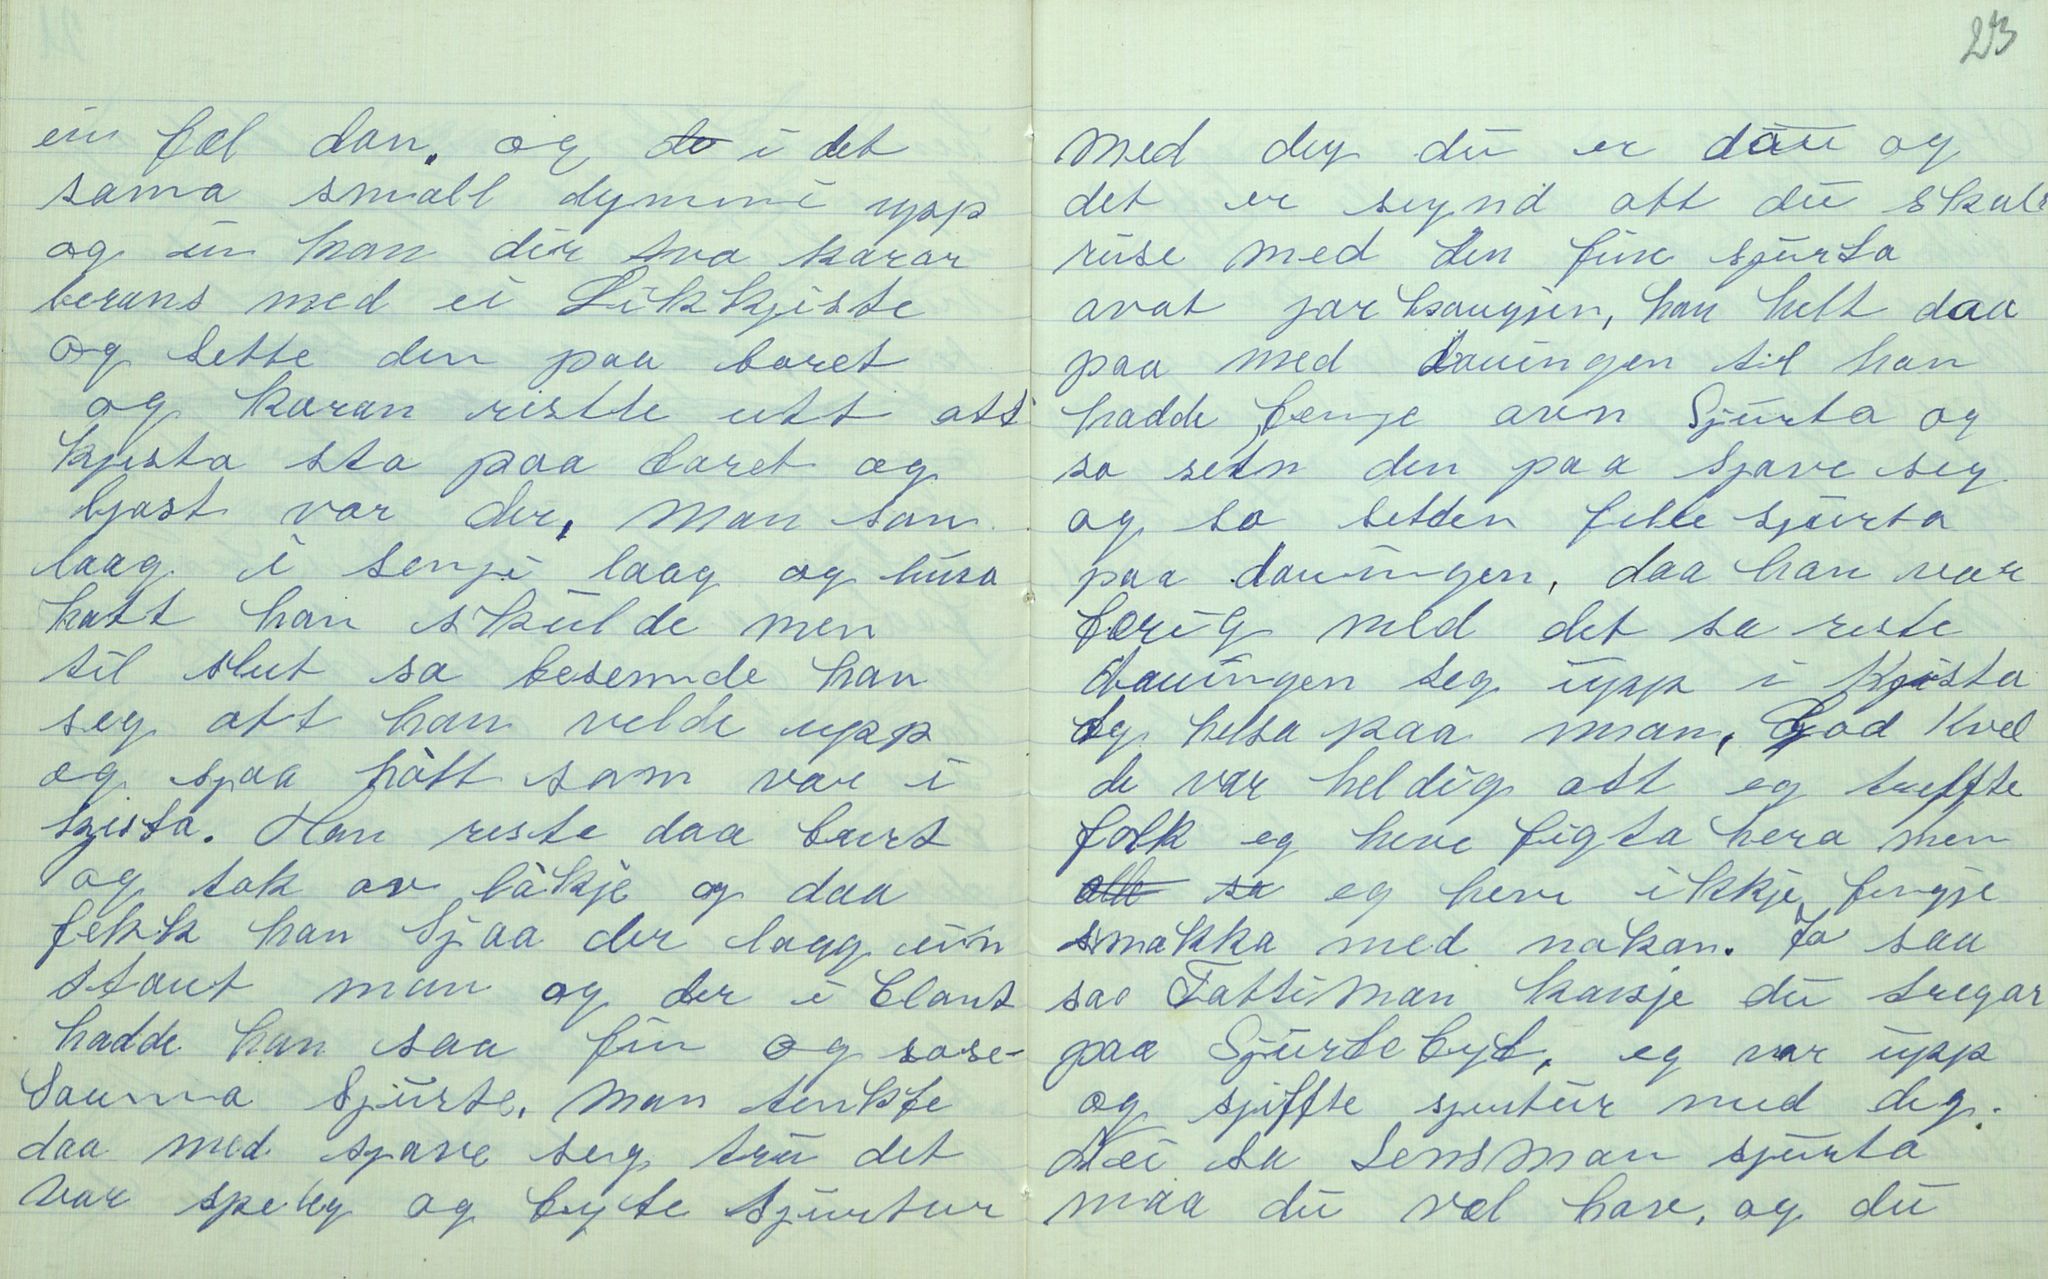 ein fæl døn. og de i det
sama small dymmi upp
og inn kom dir tva karar
berans med ei Likkjiste
og sette den paa boret
og karan reiste utt att
kjista sto paa boret og
ljost var der, Man son
laag i sengi laag og lúra
katt han skúlde men
til slut sa besemde han
seg att han velde upp
og sjaa kótt som var i
kjista. Han reiste daa burt
og tok av lókje og daa
fekk han Sjaa der laag ein
staut man og der i blant
hadde han saa fin og rose-
sauma Sjúrte. Man tenkte
daa med sjave seg trú det
var speleg og byte Sjurtur
23
med deg dú er daú og
det er seynd att dú skale
rúse med den fine sjúrta
avat jorksaugjen, han helt daa
paa med dauingen til han
hadde fenge avn Sjúrta og
so setn den paa sjave seg
og so setden felle sjúrta
paa dauingen, daa han var
færig med det sa reiste
Dauingen seg úpp i Kjista
Og helsa paa man, God Kvel
de var heldig att eg treffte
folk eg heve figta hera men
alle sa eg heve ikkje fengje
smakka med nokon. Ja saa
sae Fattiman kasje dú tregar
paa Sjúrtebyt, eg var úpp
og sjiffte sjurtúr med deg.
Nei sa Lensman sjúrta
maa dú vel have, og dú